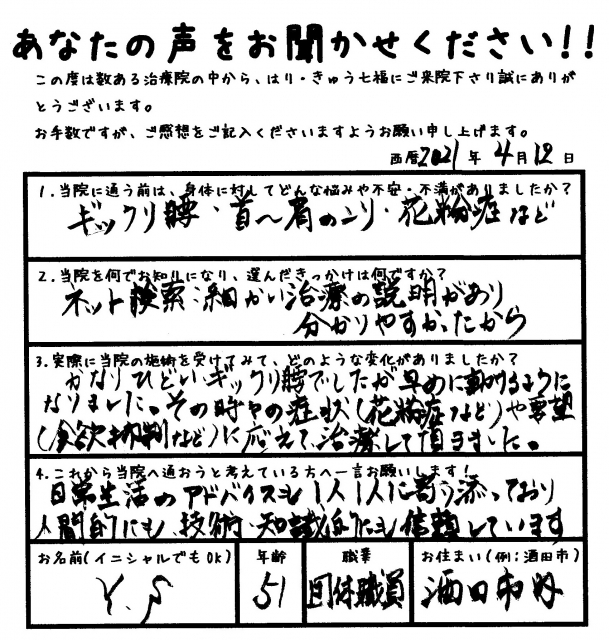 あなたの声をお聞かせください!!
この度は数ある治療院の中から、はり・きゅう七福にご来院下さり誠にありが
とうございます。
お手数ですが、ご感想をご記入くださいますようお願い申し上げます。
西暦2021年 4月12日
1.当院に通う前は、身体に対してどんな悩みや不安・不満がありましたか?
ギックリ腰・首〜肩のコリ・花粉症など
2.当院を何でお知りになり、選んだきっかけは何ですか?
ネット検索:細かい治療の説明があり
分かりやすかったから
3.実際に当院の施術を受けてみて、どのような変化がありましたか?
かなりひどいギックリ腰でしたが早めに動けるように
なりました。その時々の症状(花粉症など)や要望
(食欲抑制など)に応えて治療して頂きました。
4.これから当院へ通おうと考えている方へ一言お願いします!
日常生活のアドバイスも1人1人に寄り添っており
人間的にも、技術・知識的にも信頼しています
お名前(イニシャルでもOK)
年齢
職業
お住まい(例:酒田市)
Y.S
51
団体職員
酒田市